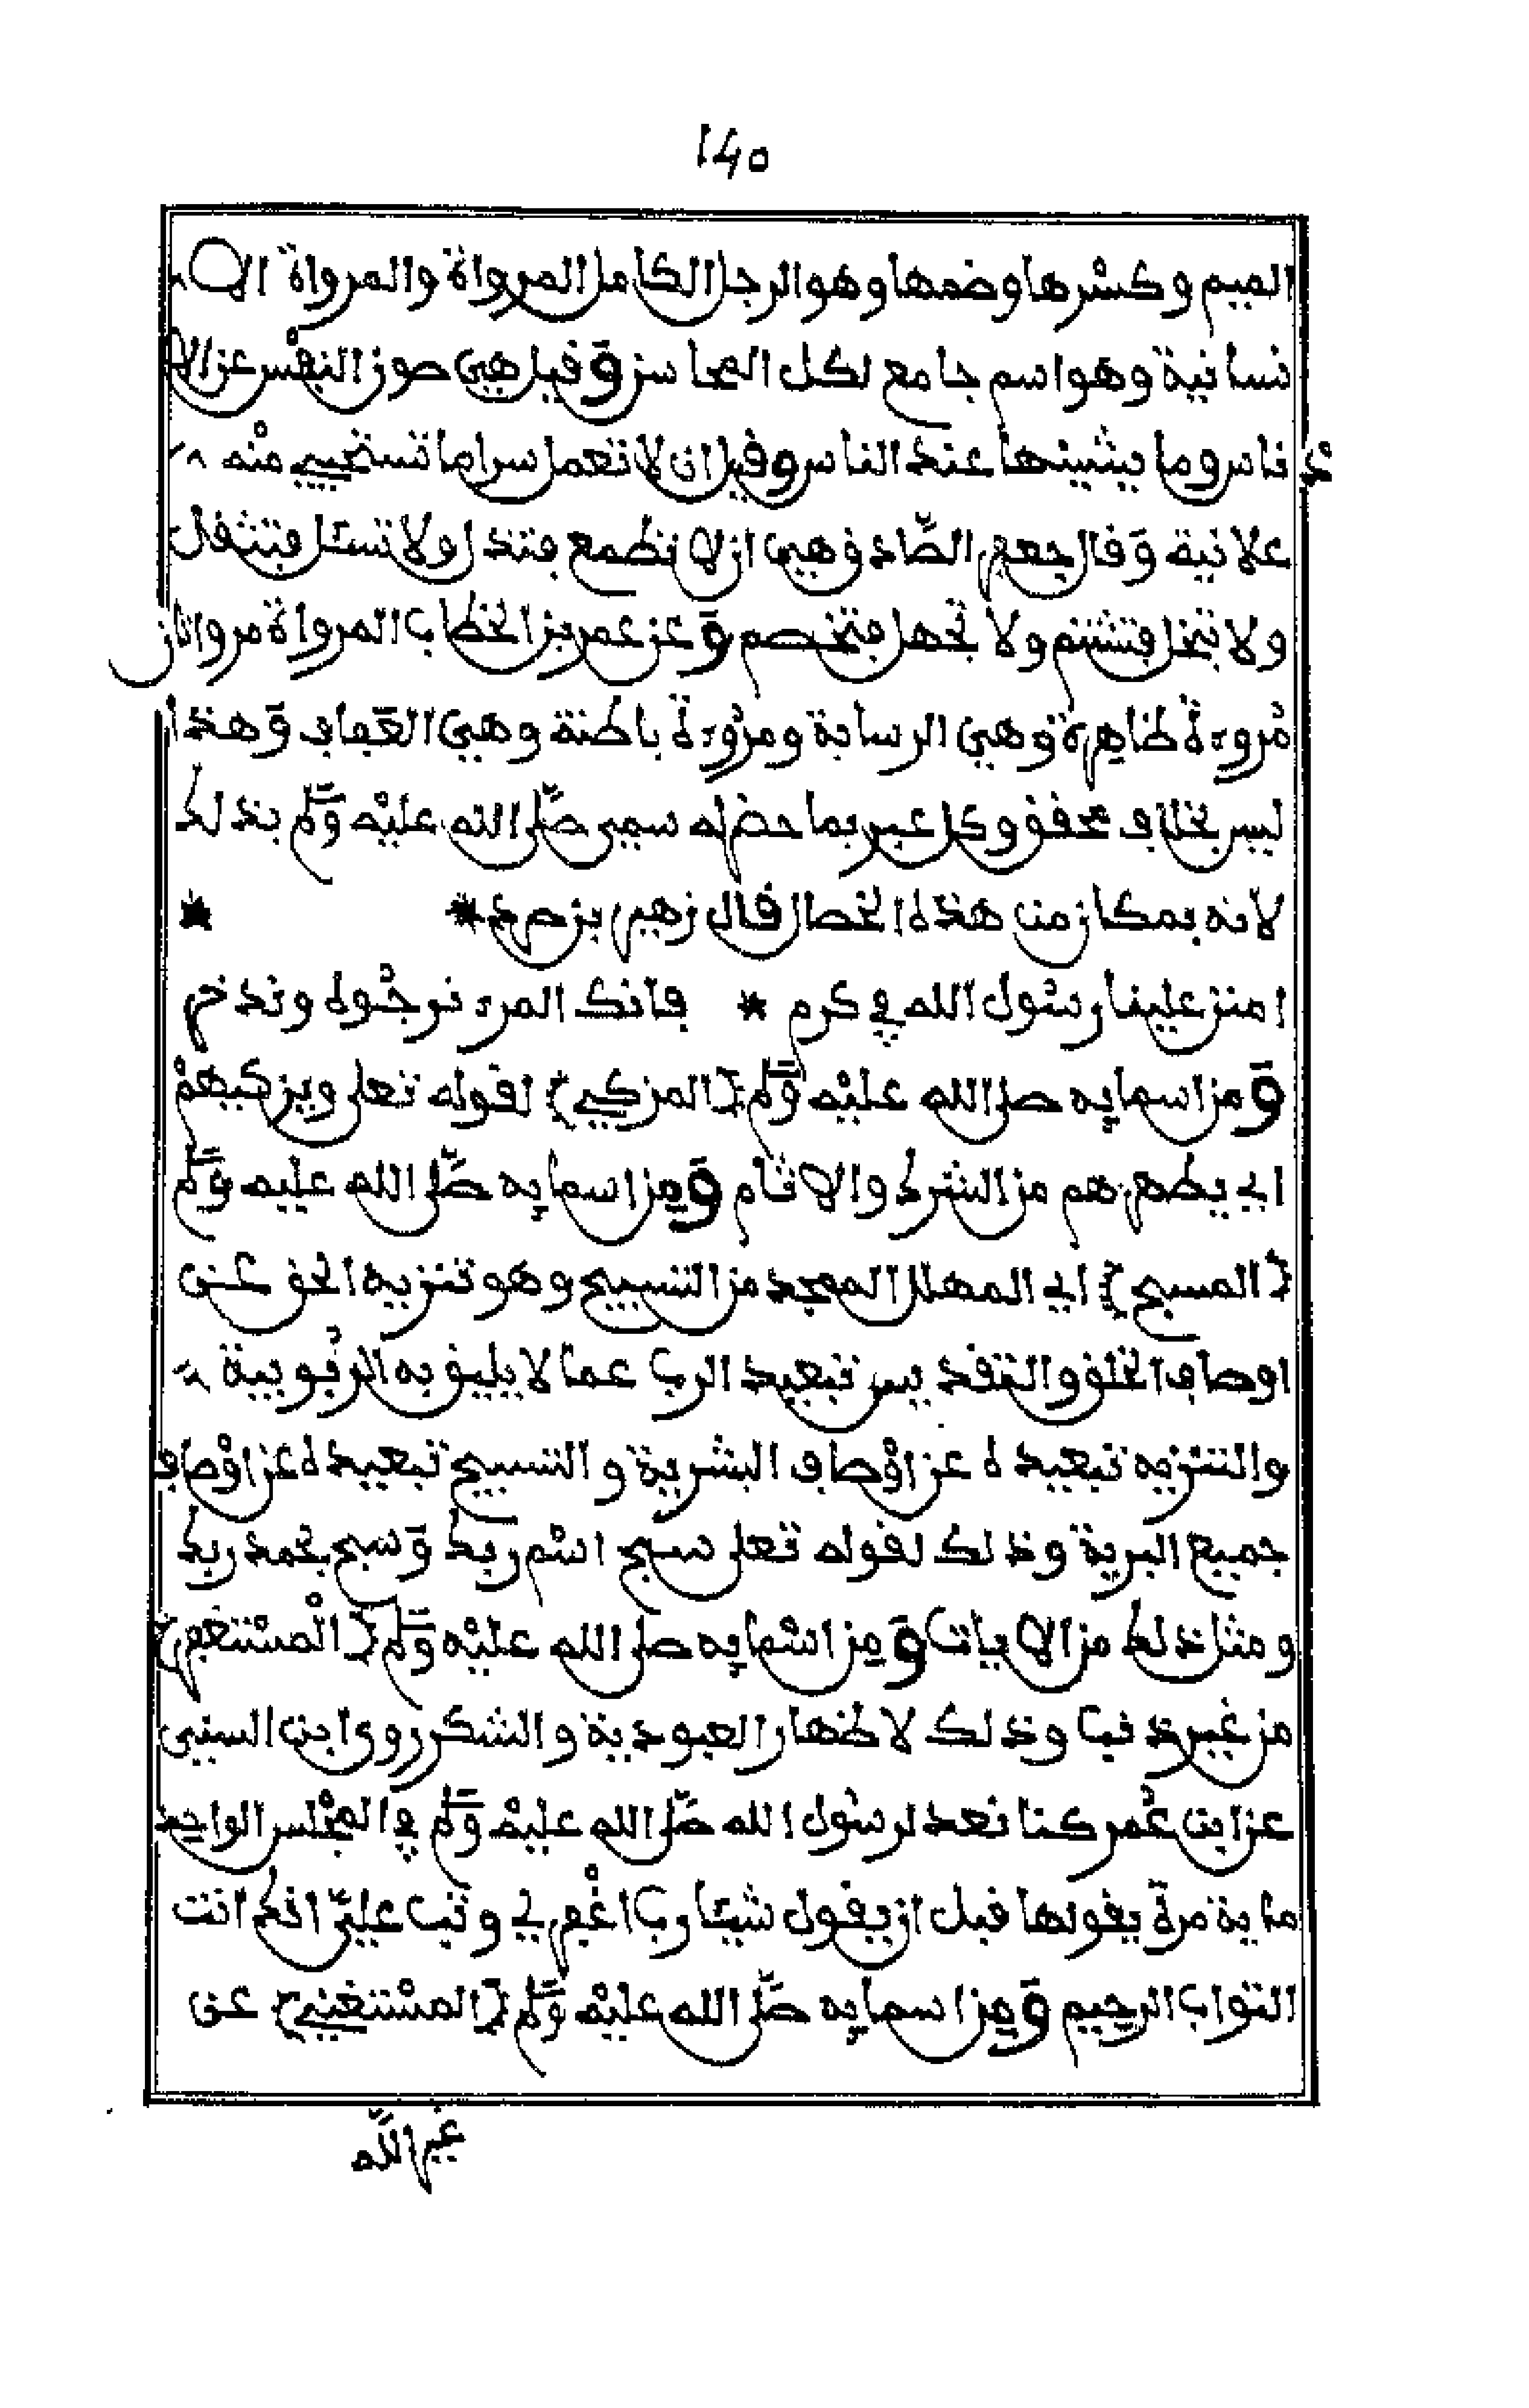 140
الميم وكسرها وضمها وهو الرجل الكامل المرواة والمرواة الا
نسانية وهو اسم جامع لكل المحاسن وقيل هي صون النفس عن الاد
ناس وما يشينها عند الناس وقيل ان لا تعمل سرا ما تستحيي منه
علانية وقال جعفر الصادق هي ان لا تطمع فتذل ولا تسئل فتثقل
ولا تبخل فتشتم ولا تجهل فتخصم وعن عمر بن الخطاب المرواة مرواتان
مروءة ظاهرة وهي الرساية ومروءة باطنة وهي العفاف وهذا
ليس بخلاف محقق وكل عبر بما حضر له سمي صلى الله عليه وسلم بذلك
لانه بمكان من هذه الخصال قال زهير بن صرد * *
امنن علينا رسول الله في كرم * فانك المرء نرجوه وندخر
ومن اسمايه صلى الله عليه وسلم {المزكي} لقوله تعلى ويزكيهم
اي يطهرهم من الشرك والاثام ومن اسمايه صلى الله عليه وسلم
{المسبح} اي المهلل الممجد من التسبيح وهو تنزيه الحق عن
اوصاف الخلق والتقديس تبعيد الرب عما لا يليق به الربوبية
والتنزيه تبعيده عن اوصاف البشرية والتسبيح تبعيده عن اوصاف
جميع البرية وذلك لقوله تعلى سبح اسم ربك وسبح بحمد ربك
ومثل ذلك من الايات ومن اسمايه صلى الله عليه وسلم {المستغفر}
من غير ذنب وذلك لاظهار العبودية والشكر روى ابن السني
عن ابن عمر كنا نعد لرسول الله صلى الله عليه وسلم في المجلس الواحد
ماية مرة يقولها قبل ان يقول شيئا رب اغفر لي وتب علي انك انت
التواب الرحيم ومن اسمايه صلى الله عليه وسلم {المستغني} عن
غير الله